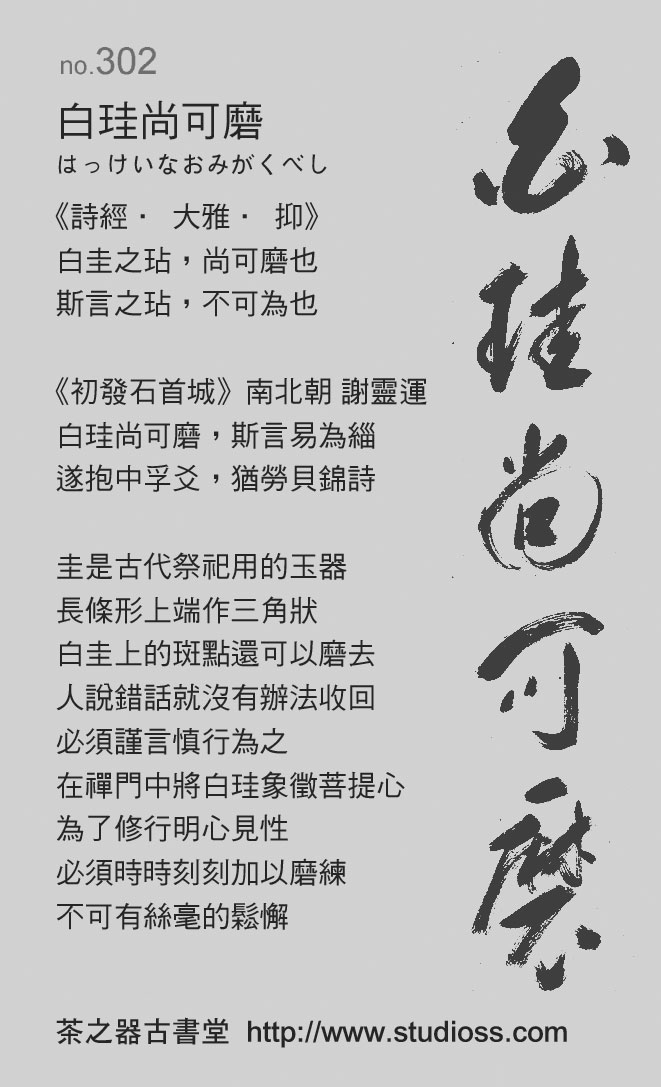 no.302
白珪尚可磨
はっけいなおみがくべし
《詩經· 大雅· 抑》
白圭之玷，尚可磨也
斯言之玷，不可為也
《初發石首城》南北朝 謝靈運
白珪尚可磨，斯言易為緇
遂抱中孚爻，猶勞貝錦詩
圭是古代祭祀用的玉器
長條形上端作三角狀
白圭上的斑點還可以磨去
人說錯話就沒有辦法收回
必須謹言慎行為之
在禪門中將白珪象徵菩提心
為了修行明心見性
必須時時刻刻加以磨練
不可有絲毫的鬆懈
茶之器古書堂 http://www.studioss.com
白珪尚可磨